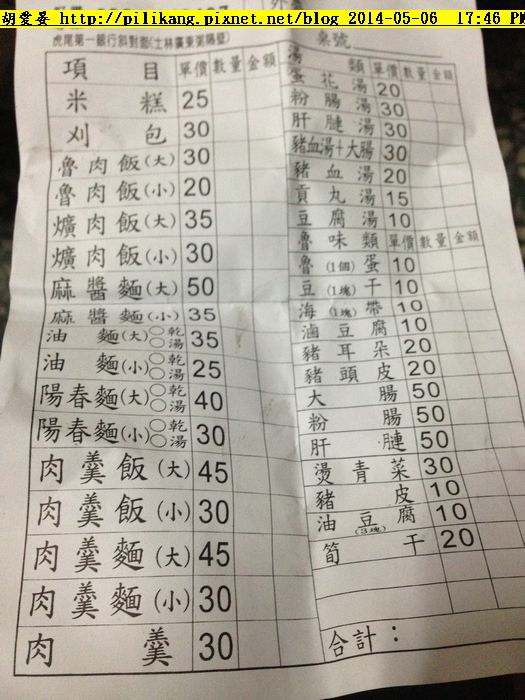 胡蹔晏 http://pilikang.pixnet.net/blog 2014-05-06 17:46 PM
虎尾第一銀行斜對面(士林廣東粥隔壁)
桌號
項目 單價 數量 金額
米糕 25
刈包 30
魯肉飯(大) 30
魯肉飯(小) 20
爌肉飯(大) 35
爌肉飯(小) 30
麻醬麵(大) 50
麻醬麵(小) 35
油麵(大) ○乾 ○湯 35
油麵(小) ○乾 ○湯 25
陽春麵(大) ○乾 ○湯 40
陽春麵(小) ○乾 ○湯 30
肉羹飯(大) 45
肉羹飯(小) 30
肉羹麵(大) 45
肉羹麵(小) 30
肉羹 30
湯類 單價 數量 金額
蛋花湯 20
粉腸湯 30
肝腱湯 30
豬血湯+大腸 30
豬血湯 20
貢丸湯 15
豆腐湯 10
魯味類 單價 數量 金額
魯(1個)蛋 10
豆(1塊)干 10
海(1塊)帶 10
滷豆腐 10
豬耳朵 20
豬頭皮 20
大腸 50
粉腸 50
肝腱 50
燙青菜 30
豬皮 10
油豆腐(3塊) 10
筍干 20
合計：